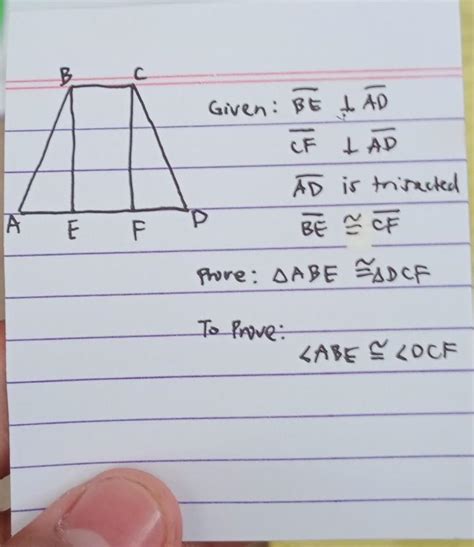 B C
Given: BE ⊥ AD
CF ⊥ AD
AD is trisected
A E F D
BE ≅ CF
Prove: △ABE ≅ △DCF
To Prove:
∠ABE ≅ ∠DCF